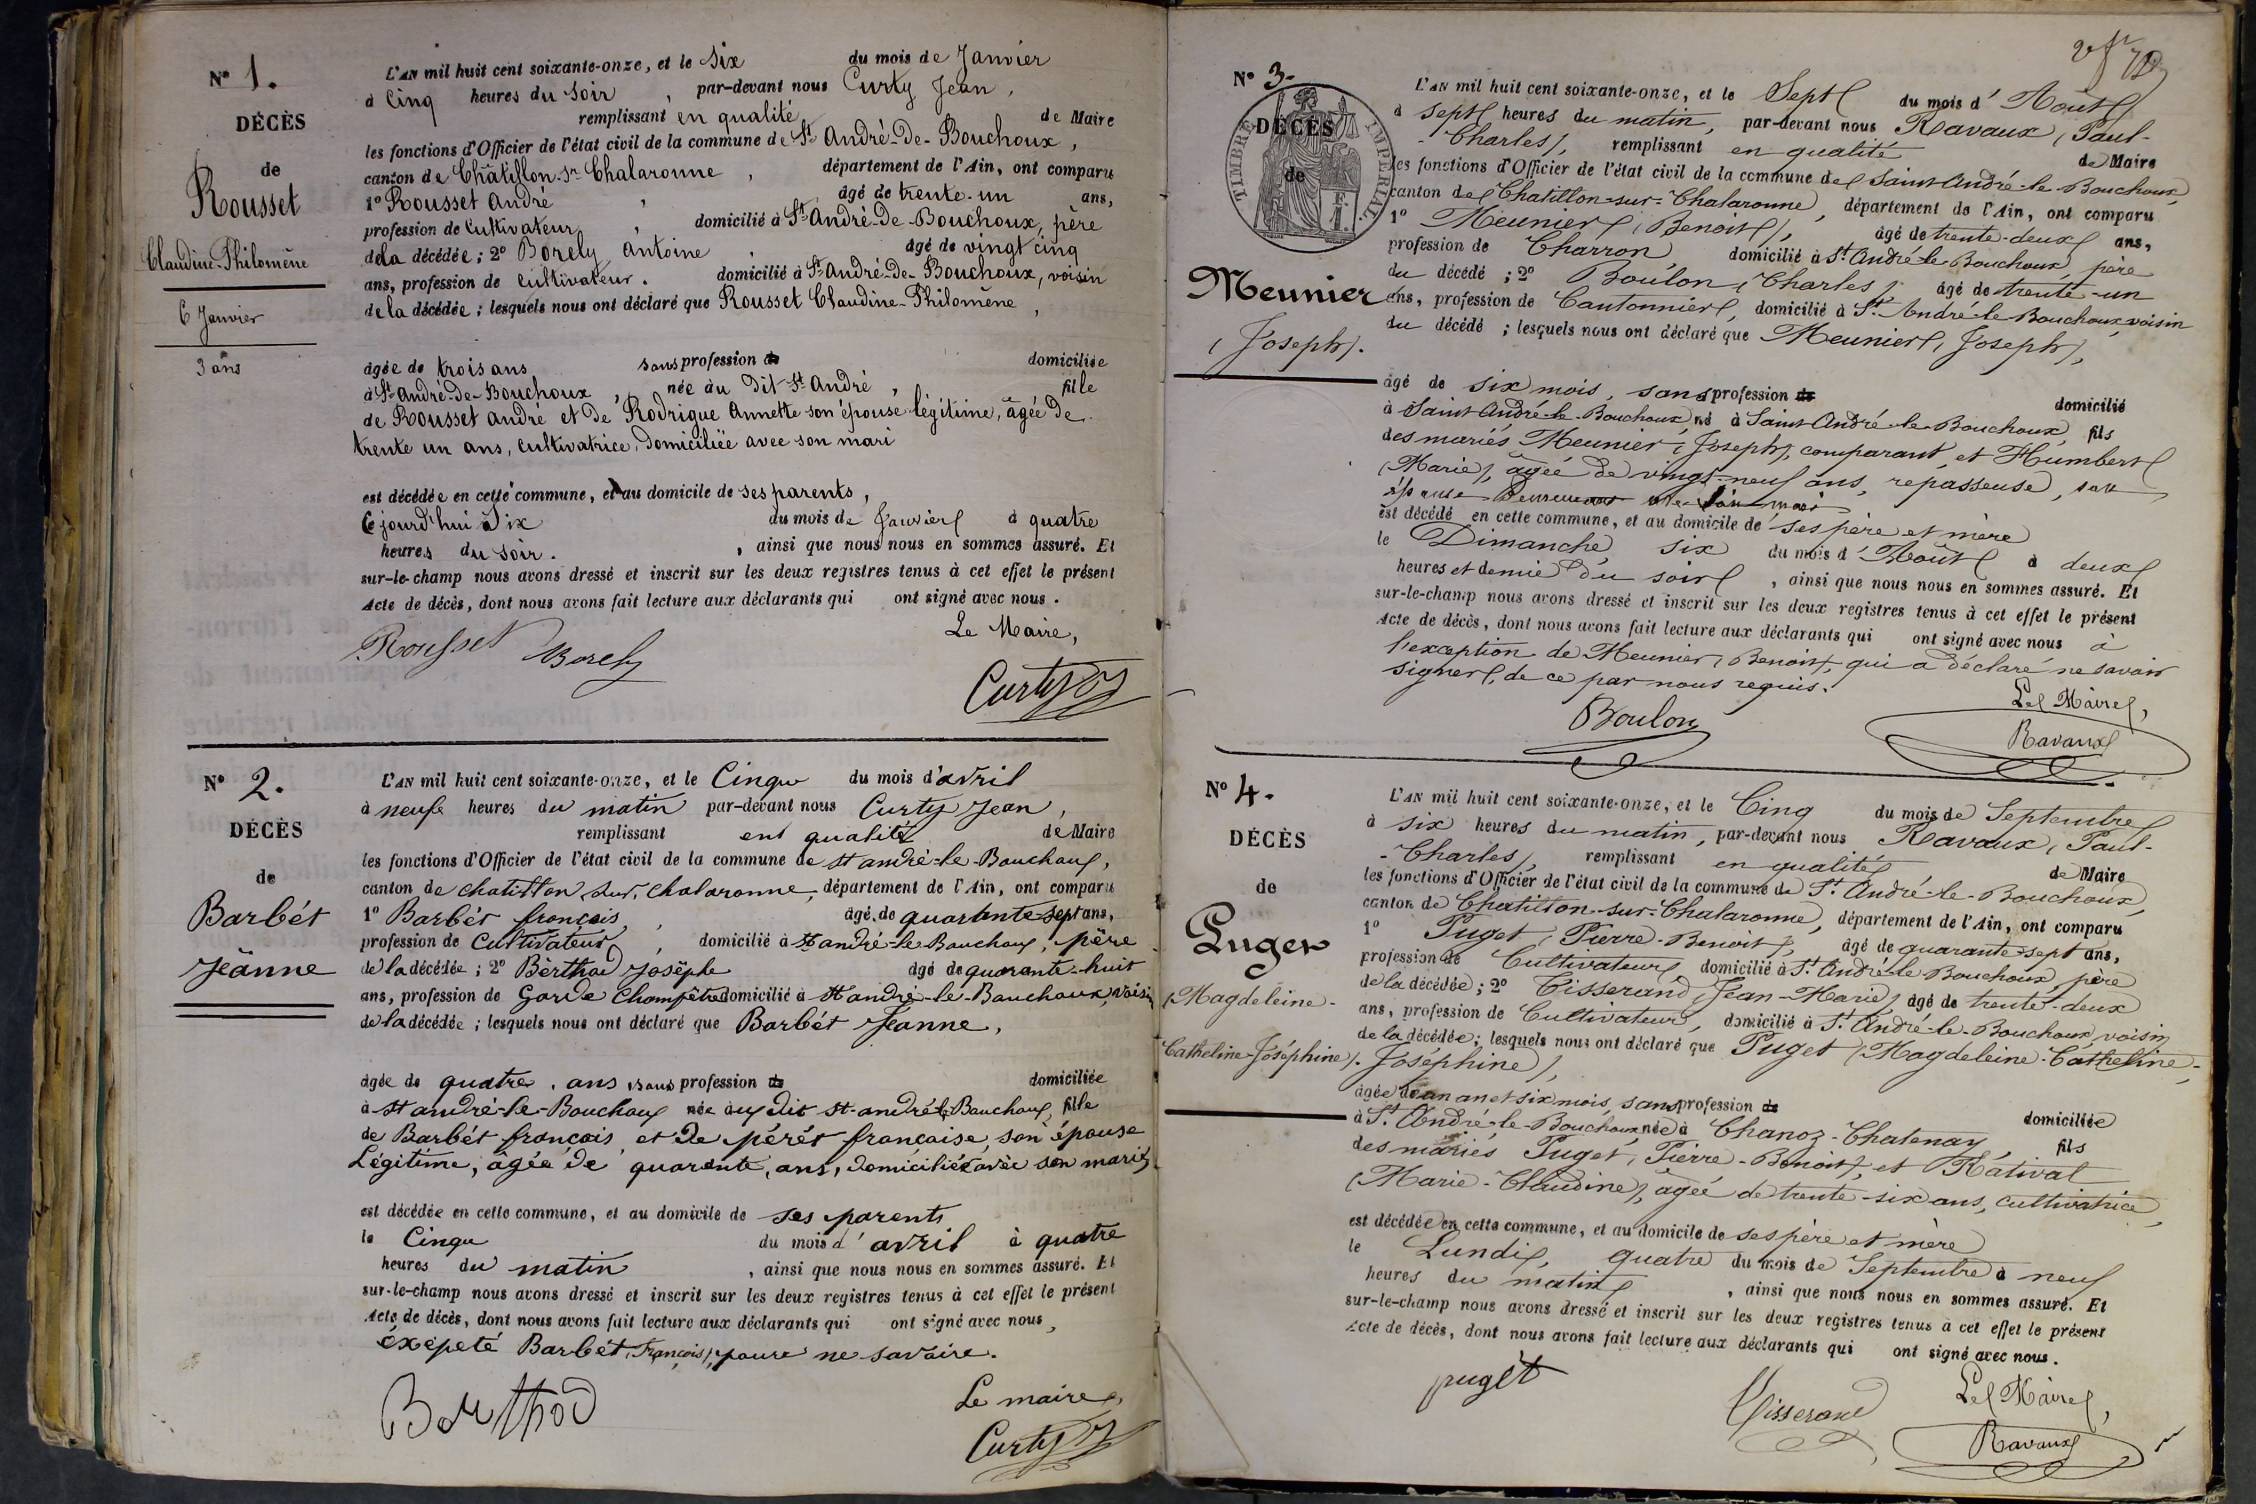 N° 1.
DÉCÈS
de
Rousset
Claudine-Philomène
6 Janvier
3 ans
L'AN mil huit cent soixante-onze, et le Six du mois de Janvier
à Cinq heures du soir, par-devant nous Curty Jean,
remplissant en qualité de Maire
les fonctions d'Officier de l'état civil de la commune de St André-De-Bouchoux,
canton de Châtillon-sr-Chalaronne, département de l'Ain, ont comparu
1° Rousset André, âgé de trente-un ans,
profession de Cultivateur, domicilié à St André-De-Bouchoux, père
de la décédée; 2° Borely Antoine, âgé de vingt cinq
ans, profession de Cultivateur. domicilié à St André-De-Bouchoux, voisin
de la décédée; lesquels nous ont déclaré que Rousset Claudine-Philomène,
âgée de trois ans, sans profession de domiciliée
à St André-de-Bouchoux, née au dit St André, fille
de Rousset André et de Rodrigue Annette son épouse légitime, âgée de
trente un ans, cultivatrice, domiciliée avec son mari
est décédée en cette commune, et au domicile de ses parents,
Ce jourd'hui Six du mois de Janvier à quatre
heures du soir. , ainsi que nous nous en sommes assuré. Et
sur-le-champ nous avons dressé et inscrit sur les deux registres tenus à cet effet le présent
Acte de décès, dont nous avons fait lecture aux déclarants qui ont signé avec nous.
Le Maire,
Rousset Borely
Curty
N° 2.
DÉCÈS
de
Barbét
Jeänne
L'AN mil huit cent soixante-onze, et le Cinqu du mois d'avril
à neufe heures du matin par-devant nous Curty Jean,
remplissant ent qualité de Maire
les fonctions d'Officier de l'état civil de la commune de st andré-le-Bouchoux,
canton de chatillon sur chalaronne, département de l'Ain, ont comparu
1° Barbét françois, âgé de quarante sept ans,
profession de Cultivateur, domicilié à st andré-le-Bouchoux, père
de la décédée; 2° Bèrthod Josèphe âgé de quarante-huit
ans, profession de Garde Champêtre domicilié à st andré-le-Bouchoux, voisin
de la décédée; lesquels nous ont déclaré que Barbét Jeanne,
âgée de quatre ans, sans profession de domiciliée
à st andré-le-Bouchoux née au dit st andré le Bouchoux, fille
de Barbét françois et de pérét françaisé, son épouse
Légitime, âgée de quarente, ans, domiciliée avèc son marit
est décédée en cette commune, et au domicile de ses parents
le Cinqu du mois d'avril à quatre
heures du matin , ainsi que nous nous en sommes assuré. Et
sur-le-champ nous avons dressé et inscrit sur les deux registres tenus à cet effet le présent
Acte de décès, dont nous avons fait lecture aux déclarants qui ont signé avec nous,
éxépeté Barbét (François), poure ne savoire.
Le maire,
Berthod
Curty
N° 3.
TIMBRE IMPÉRIAL
DÉCÈS
de
Meunier
(Joseph).
L'AN mil huit cent soixante-onze, et le Sept du mois d'Août
à sept heures du matin, par-devant nous Ravaux (Paul-
-Charles), remplissant en qualité de Maire
les fonctions d'Officier de l'état civil de la commune de Saint André-le-Bouchoux,
canton de Chatillon-sur-Chalaronne, département de l'Ain, ont comparu
1° Meunier (Benoit), âgé de trente-deux ans,
profession de Charron, domicilié à St André-le-Bouchoux, père
du décédé; 2° Boulon (Charles) âgé de trente-un
ans, profession de Cantonnier, domicilié à St André-le-Bouchoux, voisin
du décédé; lesquels nous ont déclaré que Meunier (Joseph),
âgé de six mois, sans profession de domicilié
à Saint André-le-Bouchoux, né à Saint André-le-Bouchoux, fils
des mariés Meunier (Joseph), comparant et Humbert
(Marie), âgée de vingt-neuf ans, repasseuse,
est décédé en cette commune, et au domicile de ses père et mère
le Dimanche six du mois d'Août à deux
heures et demie du soir, ainsi que nous nous en sommes assuré. Et
sur-le-champ nous avons dressé et inscrit sur les deux registres tenus à cet effet le présent
Acte de décès, dont nous avons fait lecture aux déclarants qui ont signé avec nous à
l'exception de Meunier (Benoit), qui a déclaré ne savoir
signer, de ce par nous requis.
Le Maire,
Boulon
Ravaux
N° 4.
DÉCÈS
de
Puget
(Magdeleine-
Catheline-Joséphine).
L'AN mil huit cent soixante-onze, et le Cinq du mois de Septembre
à six heures du matin, par-devant nous Ravaux (Paul-
-Charles), remplissant en qualité de Maire
les fonctions d'Officier de l'état civil de la commune de St André-le-Bouchoux,
canton de Chatillon-sur-Chalaronne, département de l'Ain, ont comparu
1° Puget (Pierre-Benoit), âgé de quarante-sept ans,
profession de Cultivateur, domicilié à St André-le-Bouchoux, père
de la décédée; 2° Tisserand (Jean-Marie) âgé de trente-deux
ans, profession de Cultivateur, domicilié à St André-le-Bouchoux, voisin
de la décédée; lesquels nous ont déclaré que Puget (Magdeleine-Catheline-
Joséphine),
âgée de un an et six mois, sans profession de domiciliée
à St André-le-Bouchoux née à Chanoz-Chatenay, fils
des mariés Puget (Pierre-Benoit), et Rativat
(Marie-Claudine), âgée de trente-six ans, cultivatrice,
est décédée en cette commune, et au domicile de ses père et mère
le Lundi, quatre du mois de Septembre à neuf
heures du matin, ainsi que nous nous en sommes assuré. Et
sur-le-champ nous avons dressé et inscrit sur les deux registres tenus à cet effet le présent
Acte de décès, dont nous avons fait lecture aux déclarants qui ont signé avec nous.
Le Maire,
puget Tisserand
Ravaux